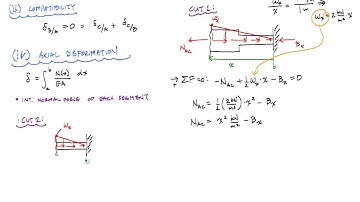 (iii) COMPATIBILITY
δ_B/A = 0 = δ_C/A + δ_C/B
(iv) AXIAL DEFORMATION
δ = ∫ N(x)/EA dx
• INT. NORMAL FORCE OF EACH SEGMENT
• CUT 2:
w_x
• CUT 1:
w_x
N_AC
B_x
x
→ ΣF=0: -N_AC + 1/2 w_x · x - B_x = 0
N_AC = 1/2 (2 kN/m²) x² - B_x
N_AC = x² kN/m² - B_x